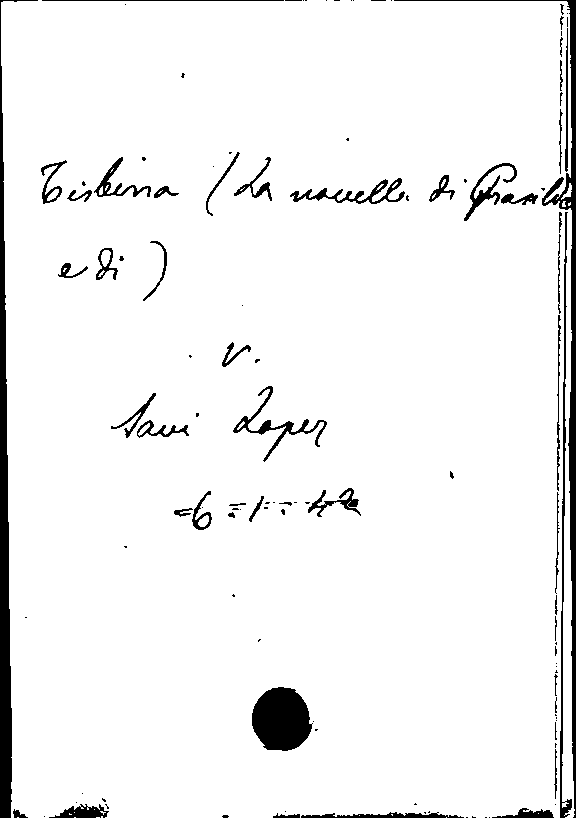 Tisbina (La novella di Prasildo
e di )
v.
Savi Lopez
=6=1=42